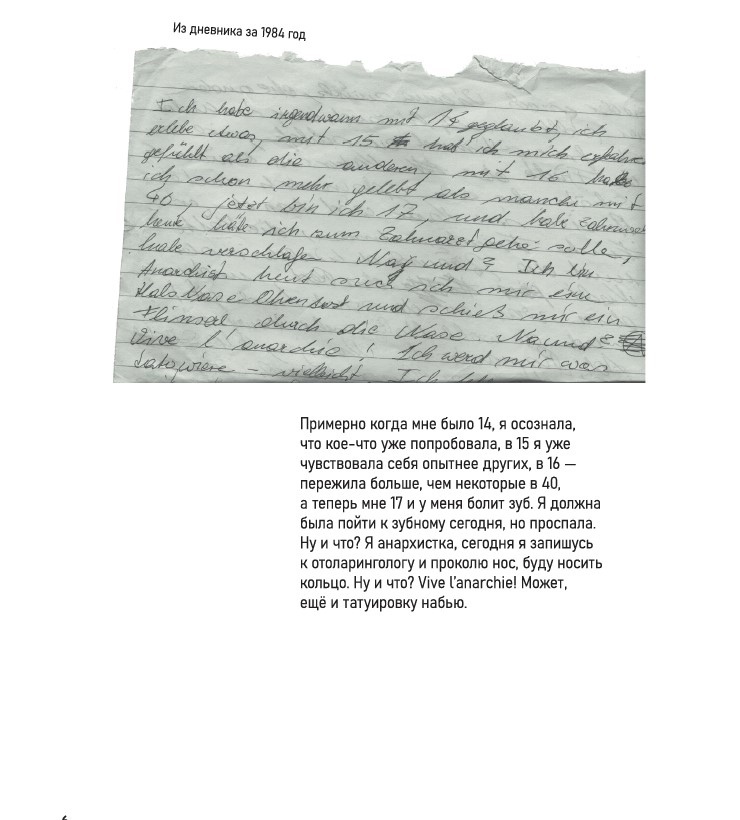 Из дневника за 1984 год
Ich habe irgendwann mit 14 geglaubt, ich
erlebe etwas, mit 15 hab ich mich erfahrener
gefühlt als die anderen, mit 16 habe
ich schon mehr gelebt als manche mit
40, jetzt bin ich 17, und habe Zahnweh
heute hätte ich zum Zahnarzt gehen sollen,
habe verschlafen. Na und? Ich bin
Anarchist heut such ich mir ein
Hals Nase Ohrenarzt und schieß mir ein
durch die Nase. Na und?
Vive l'anarchie! Ich werd mir was
- vielleicht. Ich
Примерно когда мне было 14, я осознала,
что кое-что уже попробовала, в 15 я уже
чувствовала себя опытнее других, в 16 —
пережила больше, чем некоторые в 40,
а теперь мне 17 и у меня болит зуб. Я должна
была пойти к зубному сегодня, но проспала.
Ну и что? Я анархистка, сегодня я запишусь
к отоларингологу и проколю нос, буду носить
кольцо. Ну и что? Vive l'anarchie! Может,
ещё и татуировку набью.